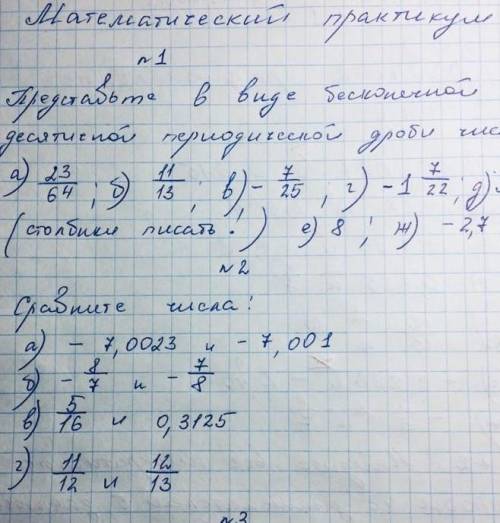 Математический практикум
№1
Представьте в виде бесконечной
десятисной периодической дроби чис
а) 23/64 ; б) 11/13 ; в) - 7/25 , г) -1 7/22 ; д)
(столбики писать !) е) 8 ; ж) - 2,7
№2
Сравните числа :
а) - 7,0023 и - 7,001
б) - 8/7 и - 7/8
в) 5/16 и 0,3125
г) 11/12 и 12/13
№3